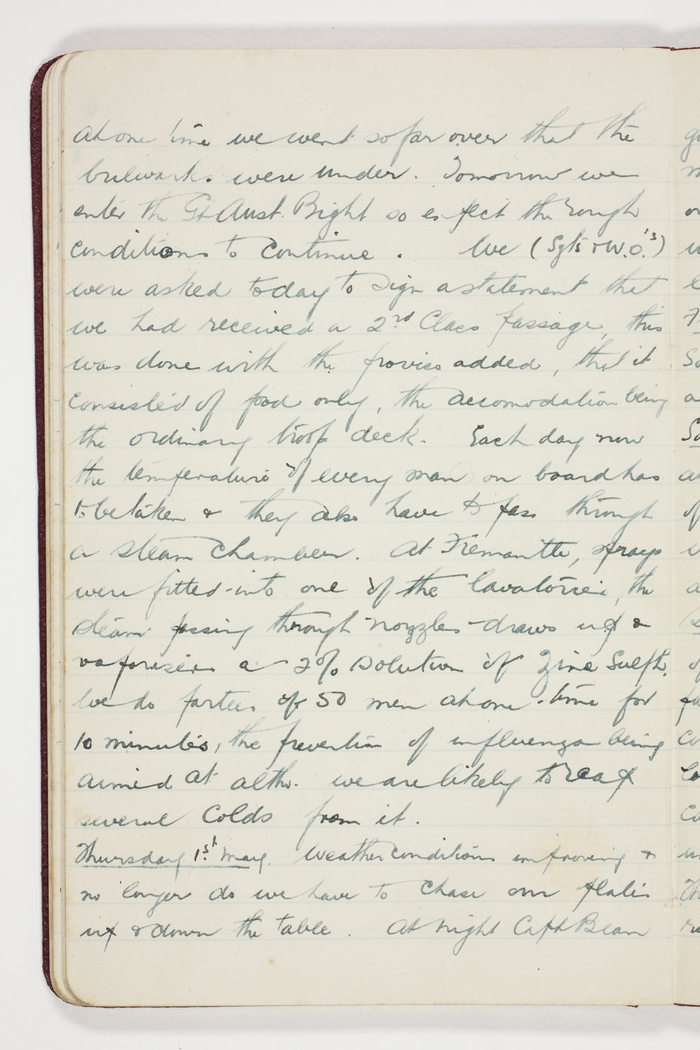 At one time we went so far over that the
bulwarks were under. Tomorrow we
enter the Gt Aust. Bight so expect the rough
conditions to continue. We (Sgts & W.O.'s)
were asked today to sign a statement that
we had received a 2nd Class passage, this
was done with the proviso added, that it
consisted of food only, the accomodation being
the ordinary troop deck. Each day now
the temperature of every man on board has
to be taken & they also have to pass through
a steam chamber. At Fremantle, sprays
were fitted into one of the lavatories, the
steam passing through nozzles draws up &
vaporises a 2% solution of Zinc Sulph.
We do parties of 50 men at one time for
10 minutes, the prevention of influenza being
aimed at altho. we are likely to reap
several colds from it.
Thursday 1st May. Weather conditions improving &
no longer do we have to chase our plates
up & down the table. At night Capt Bean